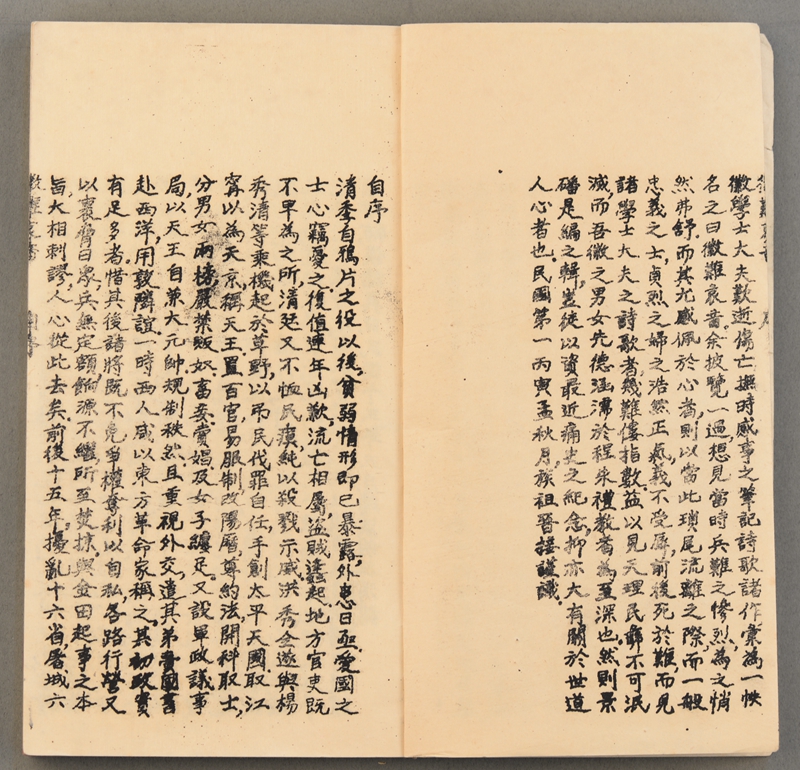 徽學士大夫歎逝傷亡撫時感事之筆記詩歌諸作彙為一帙
名之曰徽難哀音余披覽一過想見當時兵難之慘烈為之悄
然弗舒而其尤感佩於心者則以當此瑣尾流離之際而一般
忠義之士貞烈之婦之浩然正氣義不受辱前後死於難而見
諸學士大夫之詩歌者幾難僂指數益以見天理民彝不可泯
滅而吾徽之男女先德涵濡於程朱禮教者為至深也然則景
磻是編之輯豈徒以資最近痛史之紀念抑亦大有關於世道
人心者也民國第一丙寅孟秋月族祖晉接謹識
自序
清季自鴉片之役以後貧弱情形即已暴露外患日亟愛國之
士心竊憂之後值連年凶歉流亡相屬盜賊蠭起地方官吏既
不早為之所清廷又不恤民瘼純以殺戮示威洪秀全遂與楊
秀清等乘機起於草野以弔民伐罪自任手創太平天國取江
寗以為天京稱天王置百官易服制改陽曆尊約法開科取士
分男女兩榜嚴禁販奴畜妾賣娼及女子纏足又設軍政議事
局以天王自兼大元帥規制秩然且重視外交遣其弟晋國書
赴西洋用敦鄰誼一時西人咸以東方革命家稱之其初政實
有足多者惜其後諸將既不免爭權奪利以自私各路行營又
以裹脅日眾兵無定額餉源不繼所至焚掠與金田起事之本
旨大相刺謬人心從此去矣前後十五年擾亂十六省屠城六